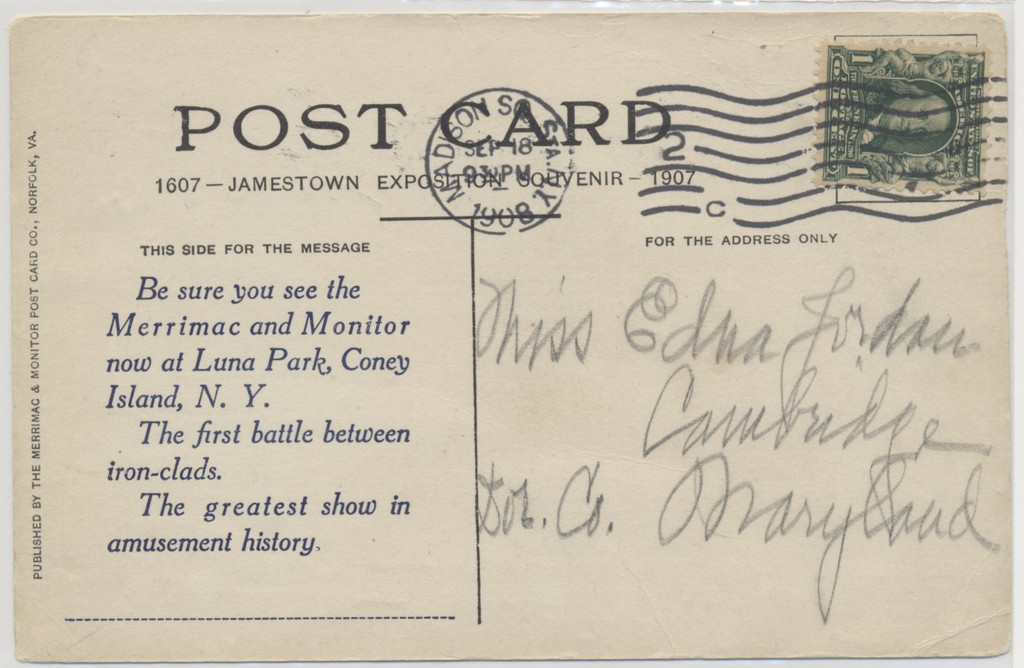 POST CARD
1607 — JAMESTOWN EXPOSITION SOUVENIR — 1907
MADISON SQ. STA. N.Y.
SEP 18
930PM
1908
2
C
1 1
PUBLISHED BY THE MERRIMAC & MONITOR POST CARD CO., NORFOLK, VA.
THIS SIDE FOR THE MESSAGE
Be sure you see the
Merrimac and Monitor
now at Luna Park, Coney
Island, N. Y.
The first battle between
iron-clads.
The greatest show in
amusement history.
FOR THE ADDRESS ONLY
Miss Edna Jordan
Cambridge
Dor. Co. Maryland